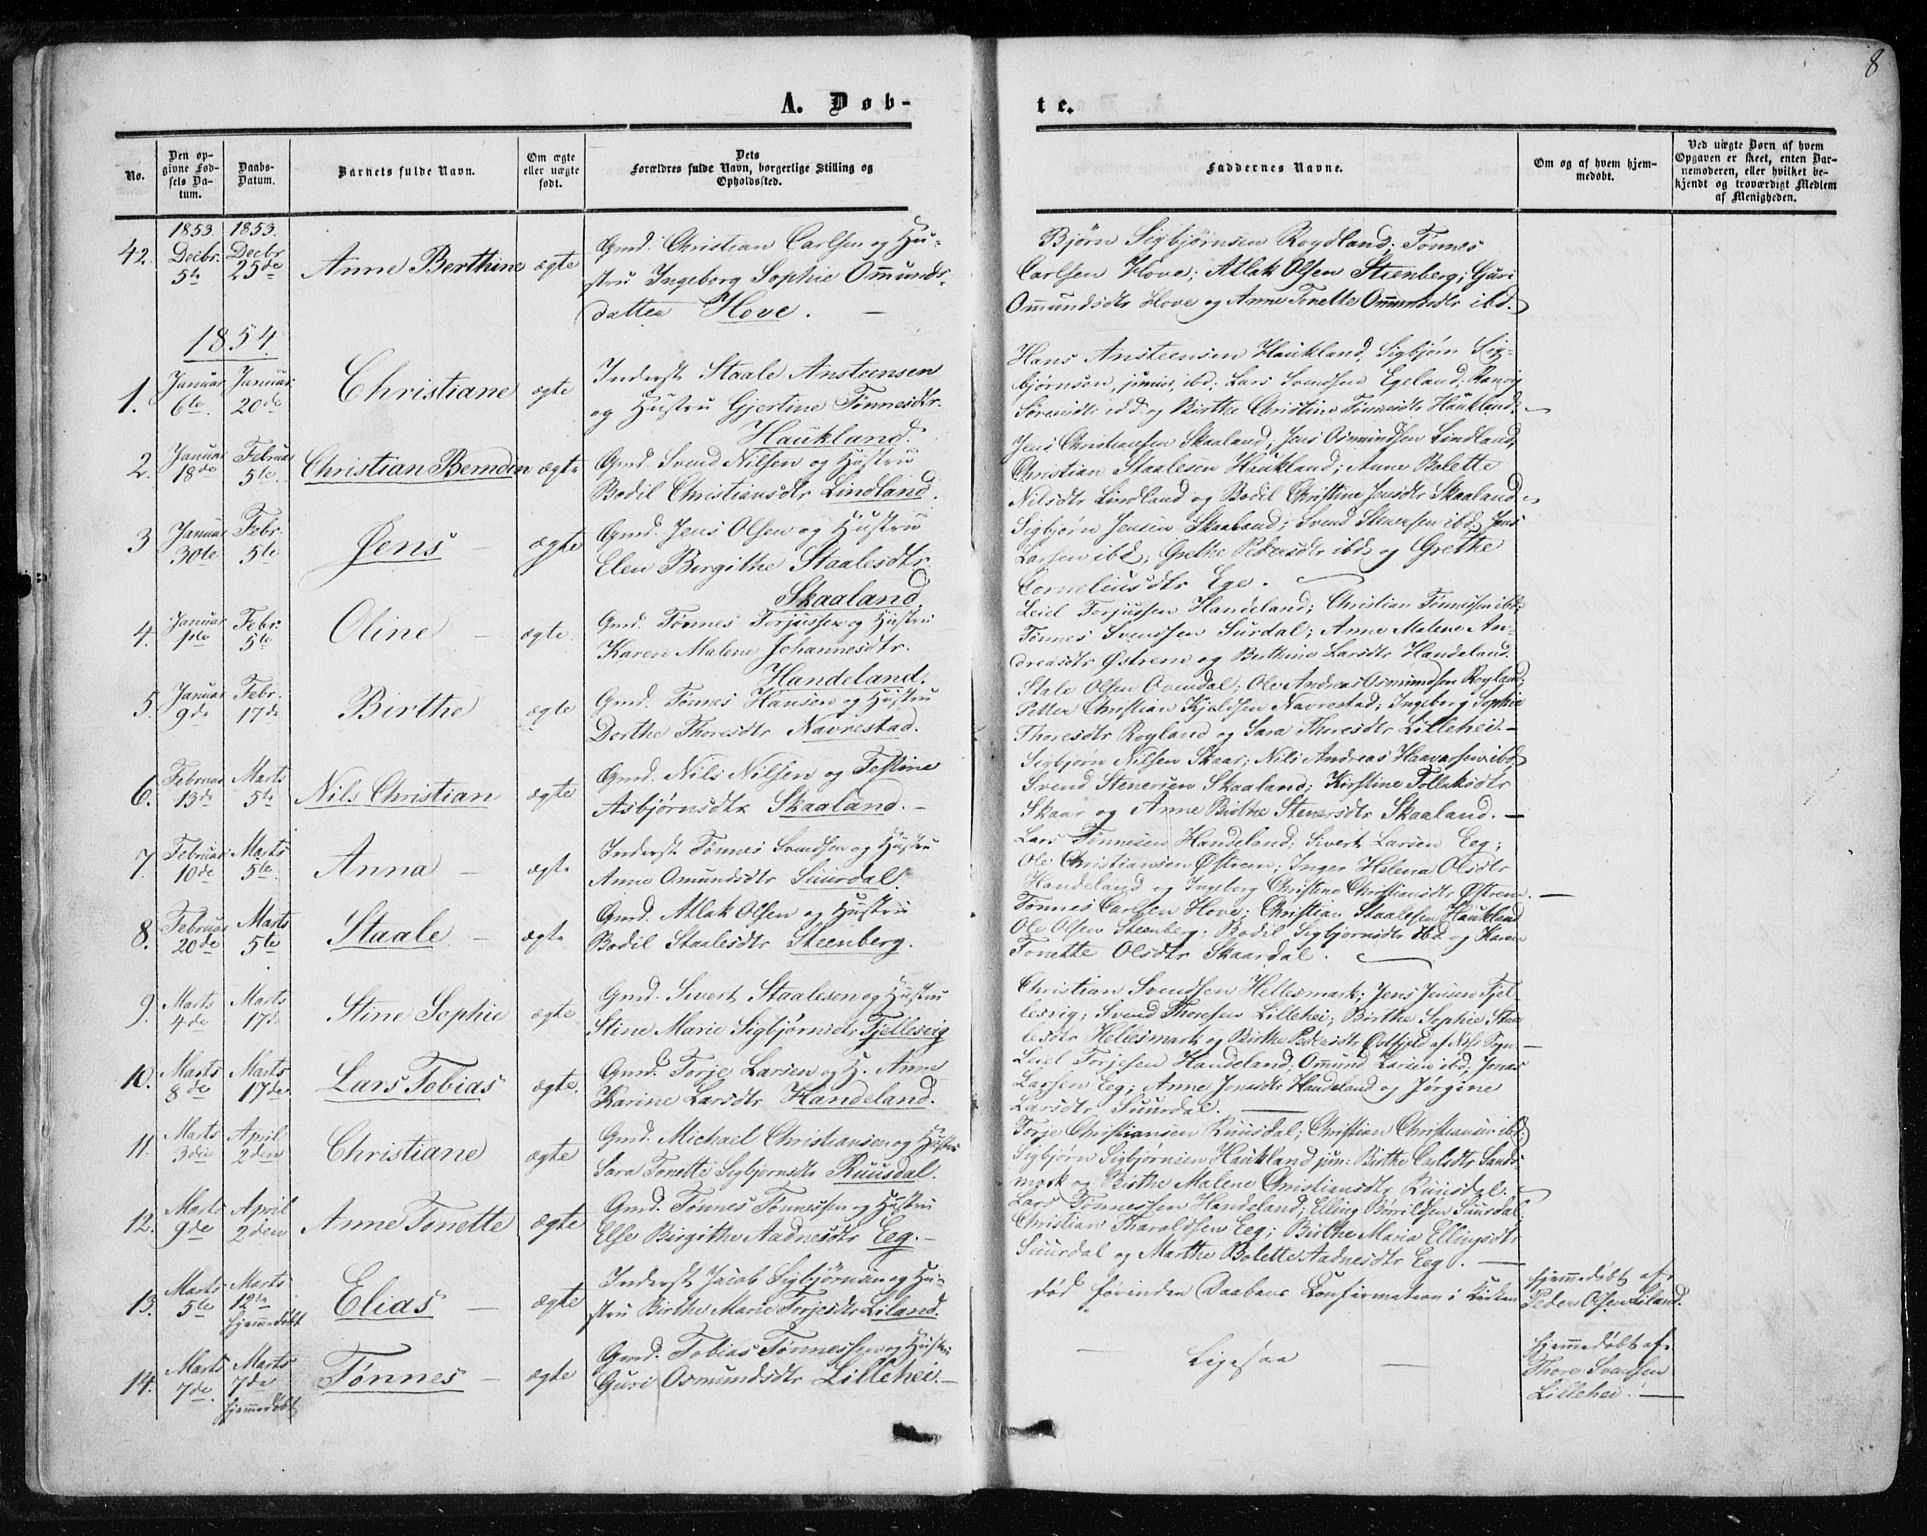 8
A. Døb-
te.
No.
Den op-
givne Fød-
sels Da-
tum.
Daabs-
Datum.
Barnets fulde Navn.
Om ægte
eller uægte
født.
Dets
Forældres fulde Navn, borgerlige Stilling og
Opholdssted.
Faddernes Navne.
Om og af hvem hjem-
medøbt.
Ved uægte Børn af hvem
Opgaven er skeet, enten Bar-
nemoderen, eller hvilket be-
kjendt og troværdigt Medlem
af Menigheden.
42.
1853.
Decbr.
5te
1853.
Decbr
25de
Anne Berthine
ægte
Gmd. Christian Carlsen og Hu-
stru Ingeborg Sophie Omunds-
datter Hove. —
Bjørn Sigbjørnsen Rogdland; Tønnes
Carlsen Hove; Atlak Olsen Steenberg; Guri
Omundsdtr Hove og Anne Tonette Omundsdtr ibd.
1854.
1.
Januar
6te
Januar
20de
Christiane
ægte
Inderst Staale Ansteensen
og Hustru Gjertine Tønnesdtr.
Haukland.
Hans Ansteensen Haukland, Sigbjørn Sig-
bjørnsen, junior, ibd; Lars Svendsen Egeland; Ranog
Sørensdtr ibd og Birthe Christine Tønnesdtr Haukland.
2.
Januar
18de
Februar
5te
Christian Berndin
ægte
Gmd. Svend Nilsen og Hustru
Bodil Christiansdtr Lindland.
Jens Christiansen Skaaland; Jens Osmundsen Lindland,
Christian Staalesen Haukland; Anne Bolette
Nilsdtr Lindland og Bodil Christine Jensdtr Skaaland.
3
Januar
30te
Febr.
5te
Jens
ægte
Gmd. Jens Olsen og Hustru
Elen Birgithe Staalesdtr.
Skaaland
Sigbjørn Jensen Skaaland; Svend Stenersen ibd; Jens
Larsen ibd; Grethe Pedersdtr ibd og Grethe
Corneliusdtr Ege.
4.
Januar
1ste
Febr.
5te
Oline
ægte.
Gmd. Tønnes Torjussen og Hustru
Karen Malene Johannesdtr.
Handeland.
Leiel Torjussen Handeland; Christian Tønnessen ibd;
Tønnes Svendsen Surdal; Anne Malene An-
dreasdtr Østrem og Berthine Larsdtr Handeland.
5.
Januar
9de
Febr.
17de
Birthe
ægte
Gmd. Tønnes Hansen og Hustru
Dorthe Thoresdtr Navrestad.
Stale Olsen Ovendal; Ole Andreas Osmundsen Rogland;
Petter Christian Kjeldsen Navrestad; Ingeborg Sophie
Thoresdtr Rogland og Sara Thoresdtr Lillehei.
6.
Februar
13de
Marts
5te
Nils Christian
ægte
Gmd. Nils Nilsen og Testine
Asbjørnsdtr Skaaland.
Sigbjørn Nilsen Skaar; Nils Andreas Haavarsen ibd;
Svend Stenersen Skaaland; Kirstine Tollaksdtr
Skaar og Anne Birthe Stenersdtr Skaaland.
7.
Februar
10de
Marts
5te.
Anna
ægte
Inderst Tønnes Svendsen og Hustru
Anne Omundsdtr Suurdal.
Lars Tønnesen Handeland; Sivert Larsen Eeg;
Ole Christiansen Østrem; Inger Helena Olsdtr
Handeland og Ingeborg Christine Christiansdtr Østrem.
8.
Februar
20de
Marts
5te
Staale
ægte
Gmd. Atlak Olsen og Hustru
Bodil Staalesdtr Steenberg.
Tønnes Carlsen Hove; Christian Staalesen Haukland
Ole Olsen Steenberg. Bodil Sigbjørnsdtr ibd og Karen
Tonette Olsdtr Skaardal.
9.
Marts
4de
Marts
17de
Stine Sophie
ægte
Gmd. Sivert Staalesen og Hustru
Stine Marie Sigbjørnsdtr Fjellesvig
Christian Svendsen Hellesmark; Jens Jensen Fjel-
lesvig; Svend Thoresen Lillehei; Birthe Sophie Staa-
lesdtr Hellesmark og Birthe Pedersdtr af Næs Sogn.
10.
Marts
8de
Marts
17de.
Lars Tobias
ægte.
Gmd. Torje Larsen og H. Anne
Karine Larsdtr Handeland.
Leiel Torjesen Handeland; Omund Larsen ibd; Jonas
Larsen Eeg; Anne Jonsdtr Handeland og Jørgine
Larsdtr Suurdal.
11.
Marts
3die
April
2den
Christiane
ægte
Gmd. Michael Christiansen og Hustru
Sara Tonette Sigbjørnsdtr Ruusdal.
Torje Christiansen Ruusdal; Christian Christiansen ibd;
Sigbjørn Sigbjørnsen Haukland jun: Birthe Carlsdtr Sands-
mark og Birthe Malene Christiansdtr Ruusdal.
12.
Marts
9de
April
2den
Anne Tonette
ægte
Gmd. Tønnes Tønnessen og Hustru
Else Birgithe Aadnesdtr Eeg.
Lars Tønnessen Handeland; Elling Børrildsen Suurdal;
Christian Tharaldsen Eeg; Birthe Maria Ellingsdtr
Suurdal og Marthe Bolette Aadnesdtr Eeg.
13.
Marts
5te
Marts
12te
hjemmedøbt
Elias
ægte
Inderst Jacob Sigbjørnsen og Hu-
stru Birthe Marie Torjesdtr Liland.
død forinden Daabens Confirmation i Kirken
hjemmedøbt af
Peder Olsen Liland.
14.
Marts
7de.
Marts
7de
hjemmedøbt
Tønnes
ægte
Gmd. Tobias Tønnessen og Hustru
Guri Osmundsdtr Lillehei.
Ligesaa
hjemmedøbt af
Thore Svendsen
Lillehei.